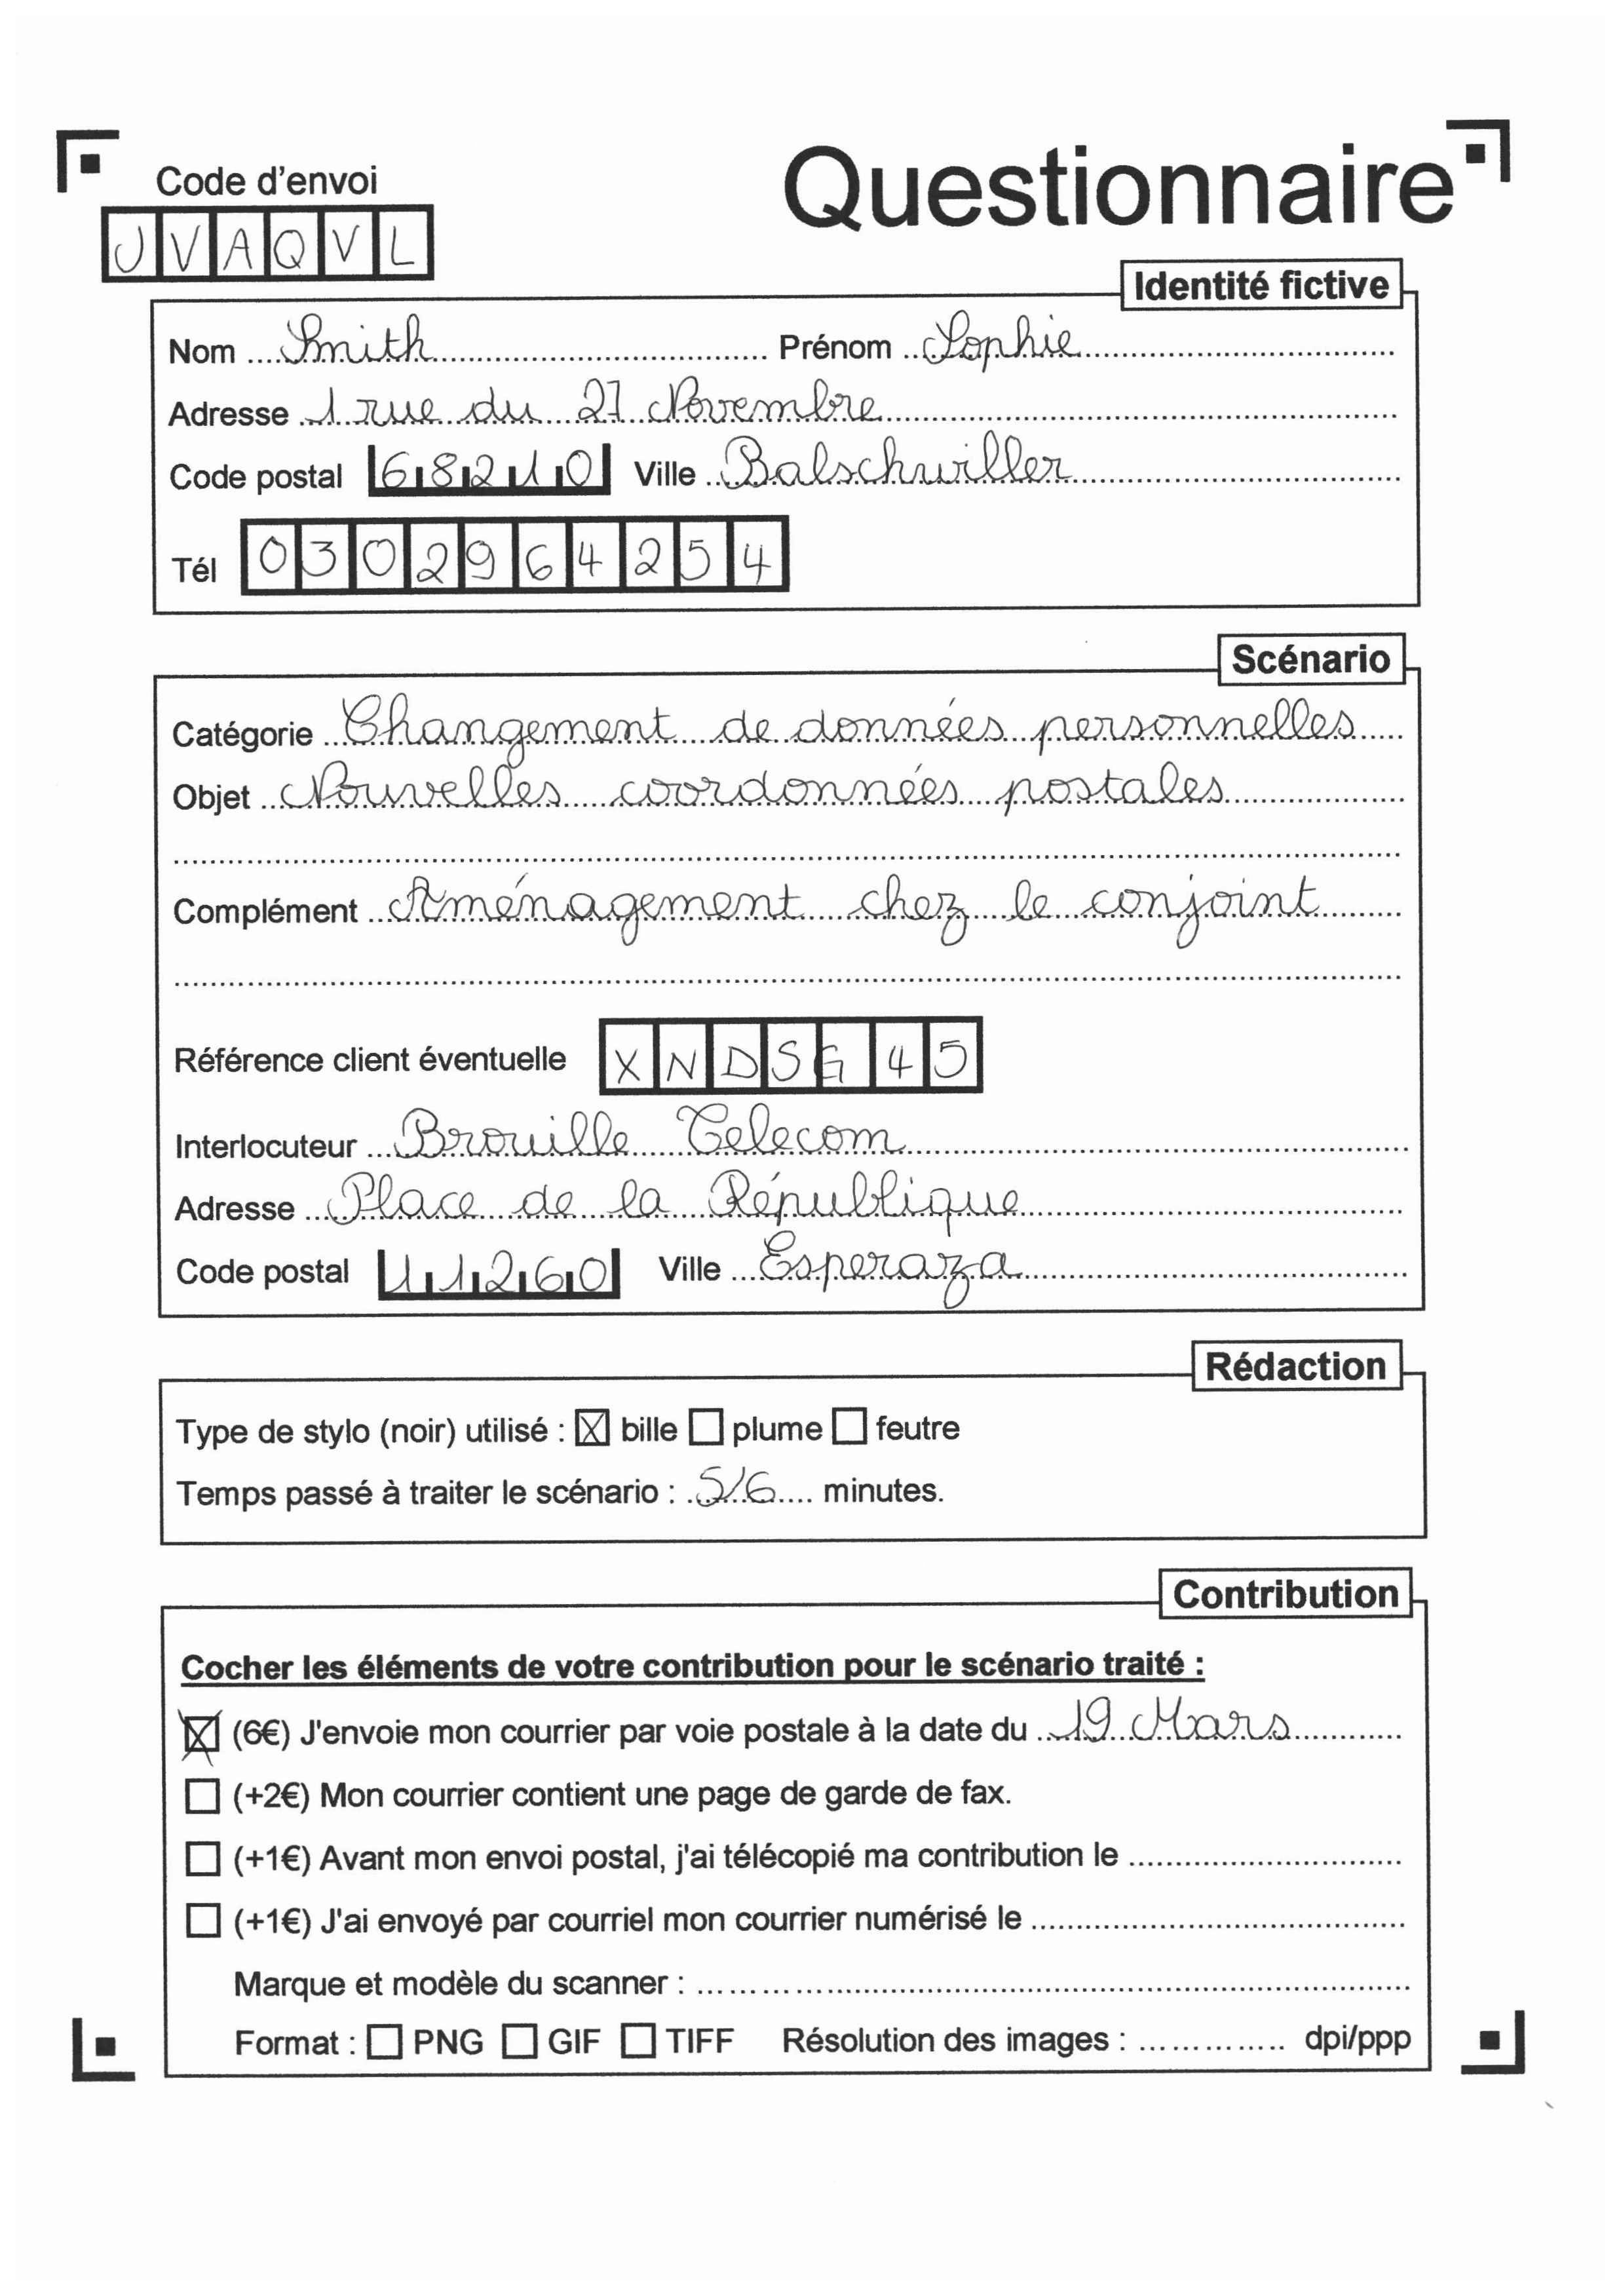 Code d'envoi
Questionnaire
JVAQVL
Identité fictive
Nom Smith Prénom Sophie
Adresse 1 rue du 27 Novembre
Code postal 68210 Ville Balschwiller
Tél 0302964254
Scénario
Catégorie Changement de données personnelles
Objet Nouvelles coordonnées postales
Complément Aménagement chez le conjoint
Référence client éventuelle XNDSG45
Interlocuteur Brouille Telecom
Adresse Place de la République
Code postal 11260 Ville Esperaza
Rédaction
Type de stylo (noir) utilisé : ☒ bille ☐ plume ☐ feutre
Temps passé à traiter le scénario : 5/6 minutes.
Contribution
Cocher les éléments de votre contribution pour le scénario traité :
☒ (6€) J'envoie mon courrier par voie postale à la date du 19 Mars
☐ (+2€) Mon courrier contient une page de garde de fax.
☐ (+1€) Avant mon envoi postal, j'ai télécopié ma contribution le
☐ (+1€) J'ai envoyé par courriel mon courrier numérisé le
Marque et modèle du scanner :
Format : ☐ PNG ☐ GIF ☐ TIFF Résolution des images : dpi/ppp